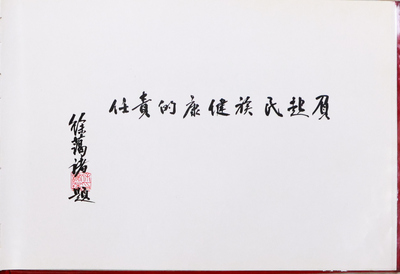 肩起民族健康的責任
徐藹諸題